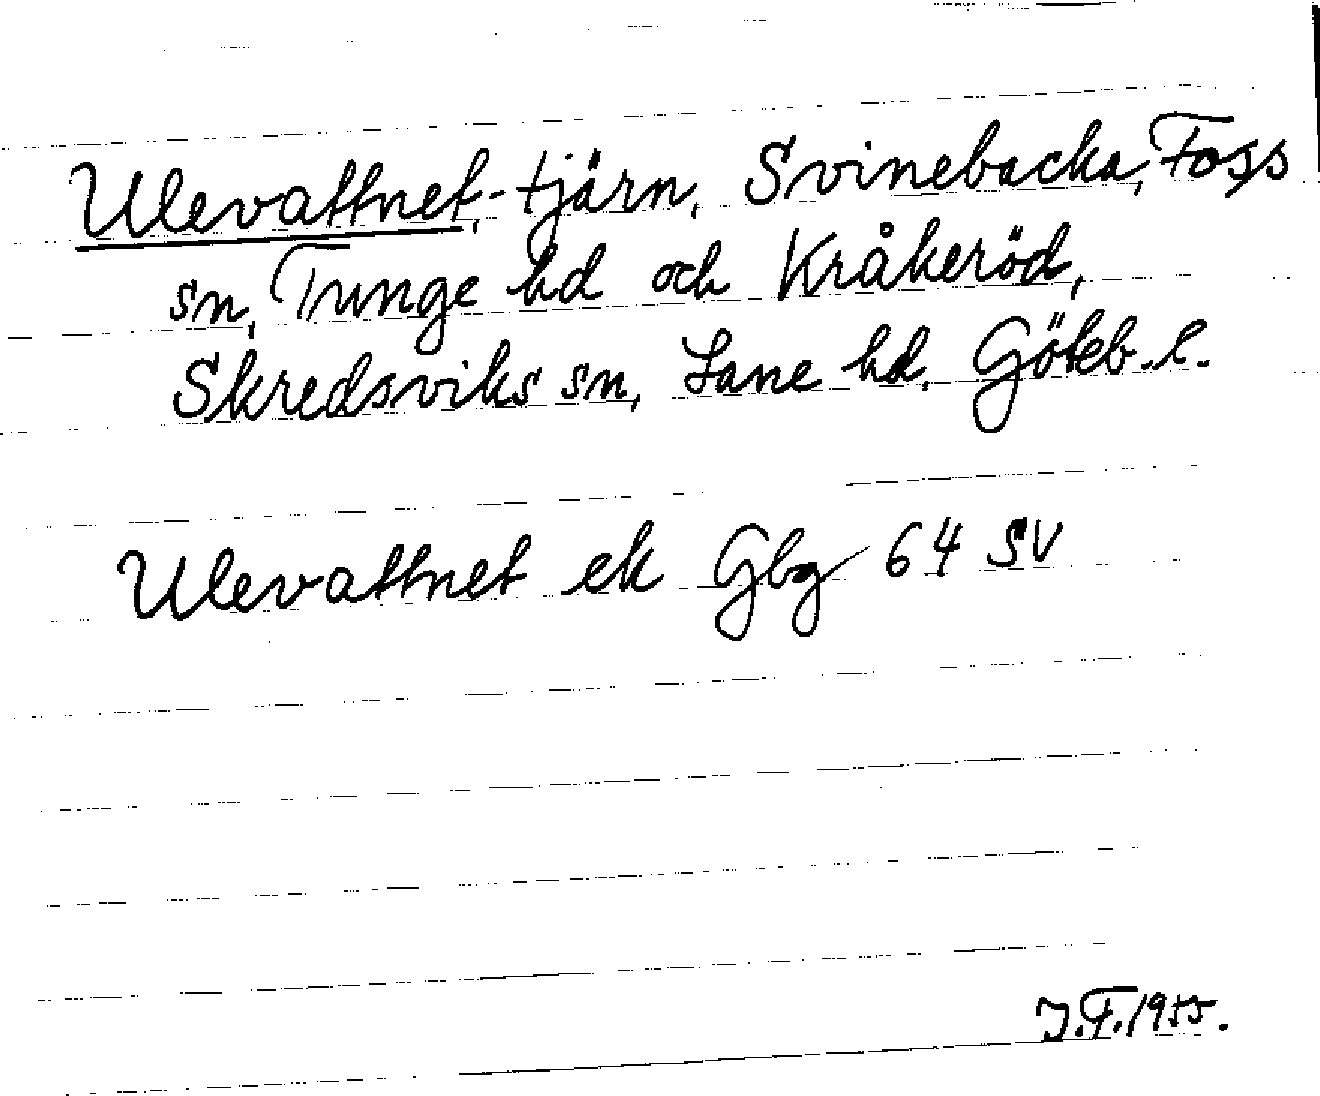 Ulevattnet, tjärn, Svinebacka, Foss
sn, Tunge hd och Kråkeröd,
Skredsviks sn, Lane hd. Göteb. l.
Ulevattnet ek Gbg 64 SV
J.F. 1955.